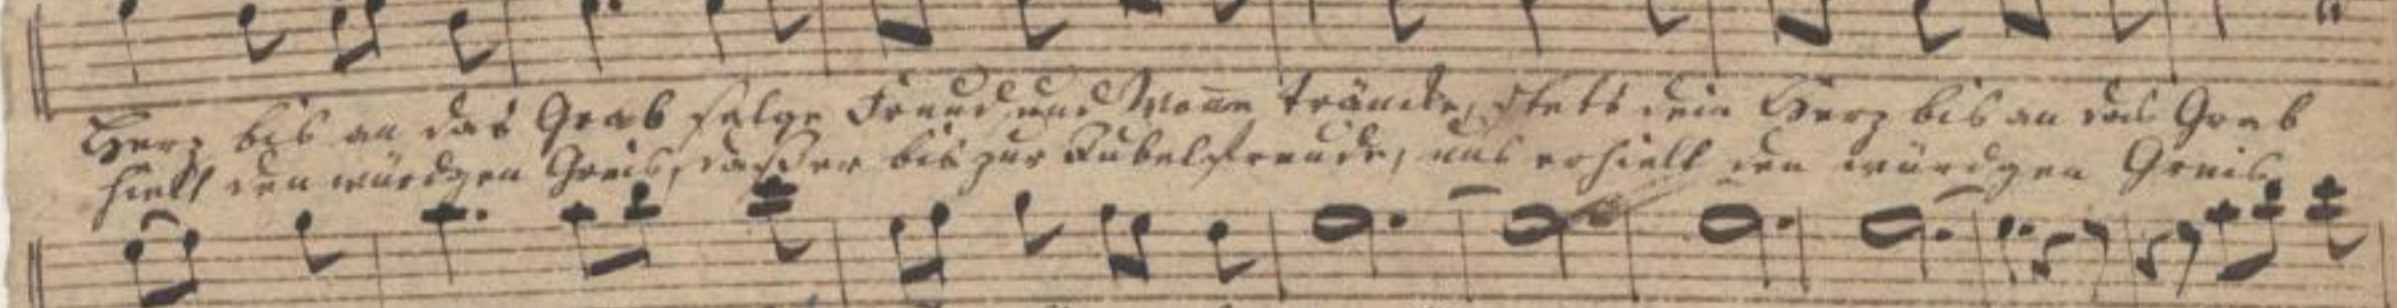 Herz bis an das Grab folge Freud und Wonne tränke, stets dein Herz bis an das Grab
hielt den würdgen Greis, daß er bis zur Jubelfreude, uns erhielt den würdgen Greis